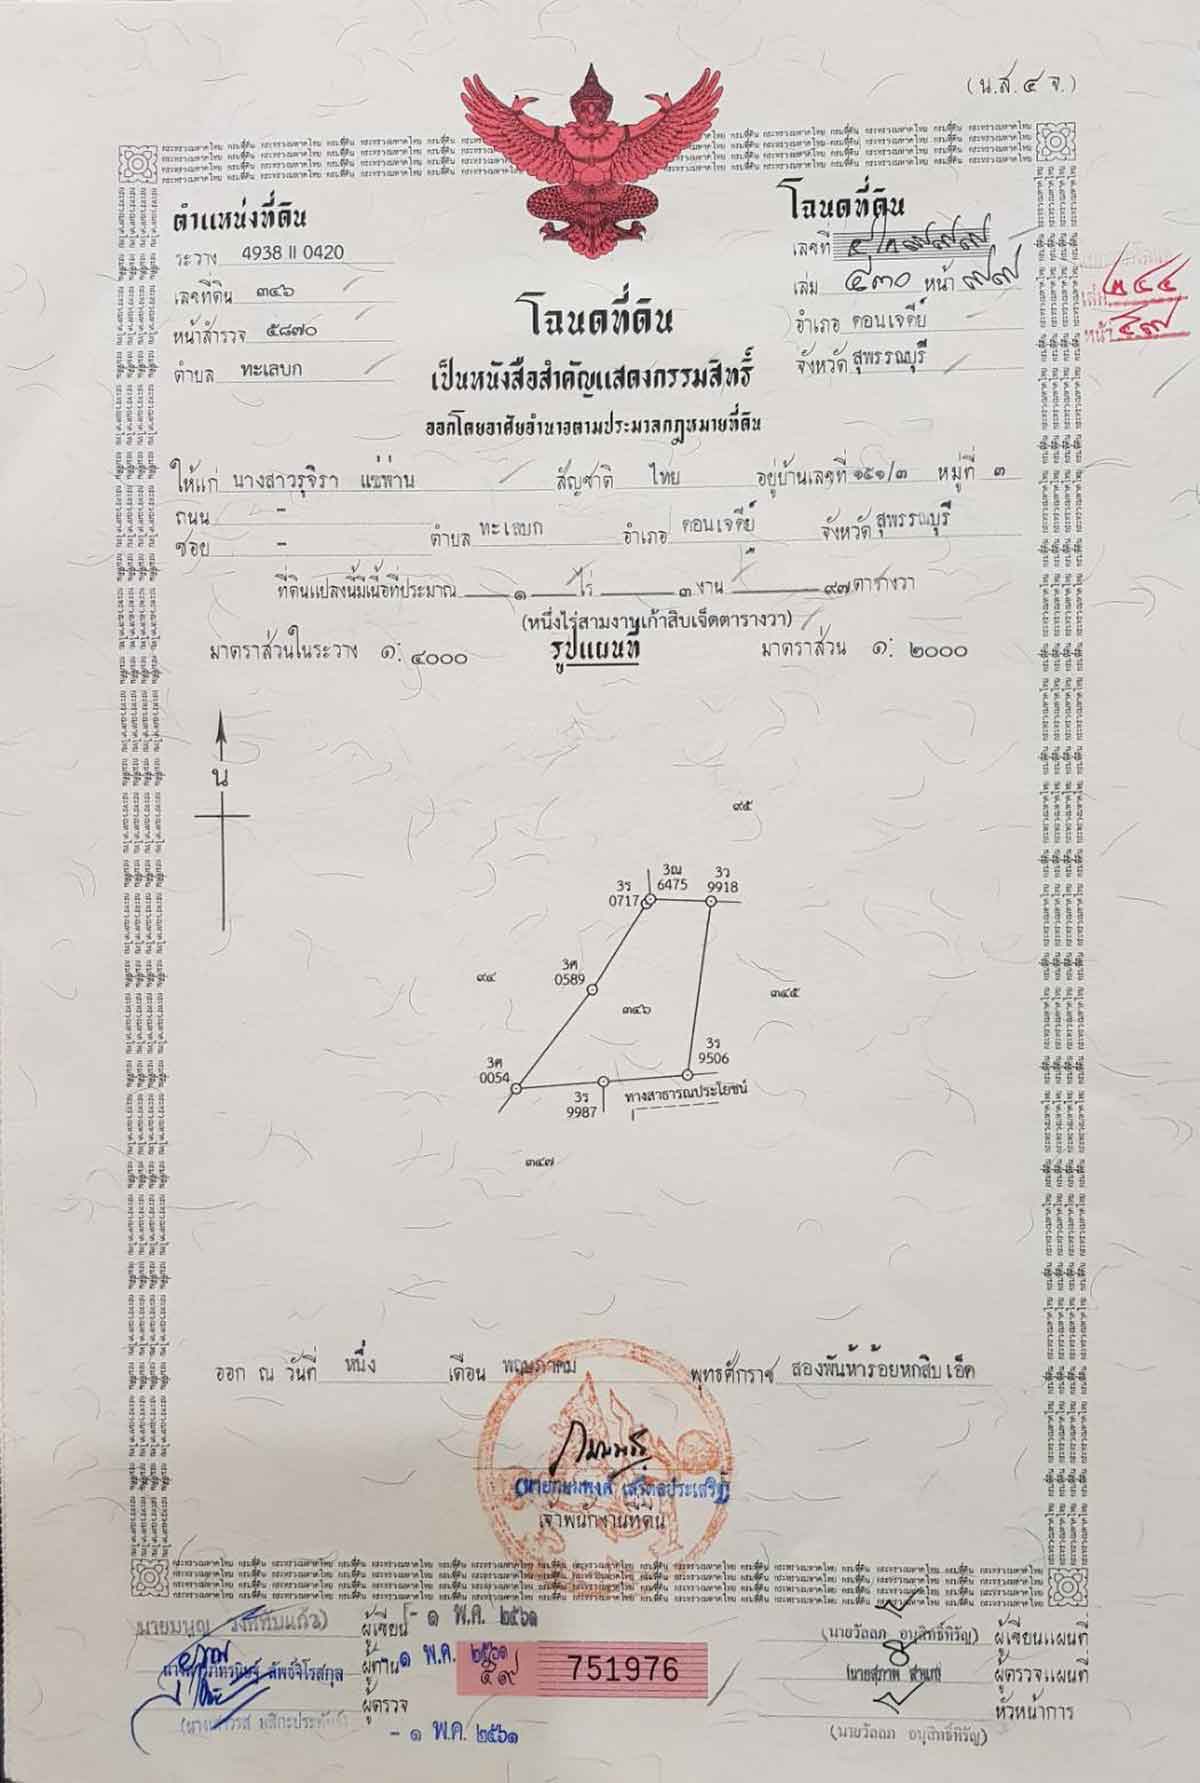 (น.ส. ๔ จ.)
ตำแหน่งที่ดิน
ระวาง 4938 II 0420
เลขที่ดิน ๓๔๖
หน้าสำรวจ ๕๘๗๐
ตำบล ทะเลบก
โฉนดที่ดิน
เลขที่
เล่ม ๔๓๐ หน้า ๗๗
อำเภอ ดอนเจดีย์
จังหวัด สุพรรณบุรี
เล่ม ๒๔๔
หน้า ๕๗
โฉนดที่ดิน
เป็นหนังสือสำคัญแสดงกรรมสิทธิ์
ออกโดยอาศัยอำนาจตามประมวลกฎหมายที่ดิน
ให้แก่ นางสาวรุจิรา แซ่พ่าน สัญชาติ ไทย อยู่บ้านเลขที่ ๑๕๑/๓ หมู่ที่ ๓
ถนน -
ซอย - ตำบล ทะเลบก อำเภอ ดอนเจดีย์ จังหวัด สุพรรณบุรี
ที่ดินแปลงนี้มีเนื้อที่ประมาณ ๑ ไร่ ๓ งาน ๙๗ ตารางวา
(หนึ่งไร่สามงานเก้าสิบเจ็ดตารางวา)
มาตราส่วนในระวาง ๑: ๔๐๐๐ รูปแผนที่ มาตราส่วน ๑: ๒๐๐๐
น
๙๕
3ร 0717
3ณ 6475
3ว 9918
3ศ 0589
๙๔
๓๔๖
๓๔๕
3ศ 0054
3ร 9987
3ร 9506
ทางสาธารณประโยชน์
๓๔๗
ออก ณ วันที่ หนึ่ง เดือน พฤษภาคม พุทธศักราช สองพันห้าร้อยหกสิบเอ็ด
เจ้าพนักงานที่ดิน
ผู้เขียน - ๑ พ.ค. ๒๕๖๑
ผู้ทาน ๑ พ.ค. ๒๕๖๑
ผู้ตรวจ
- ๑ พ.ค. ๒๕๖๑
๕๙ 751976
(นายวัลลภ อนุสิทธิ์หิรัญ) ผู้เขียนแผนที่
ผู้ตรวจแผนที่
หัวหน้าการ
(นายวัลลภ อนุสิทธิ์หิรัญ)